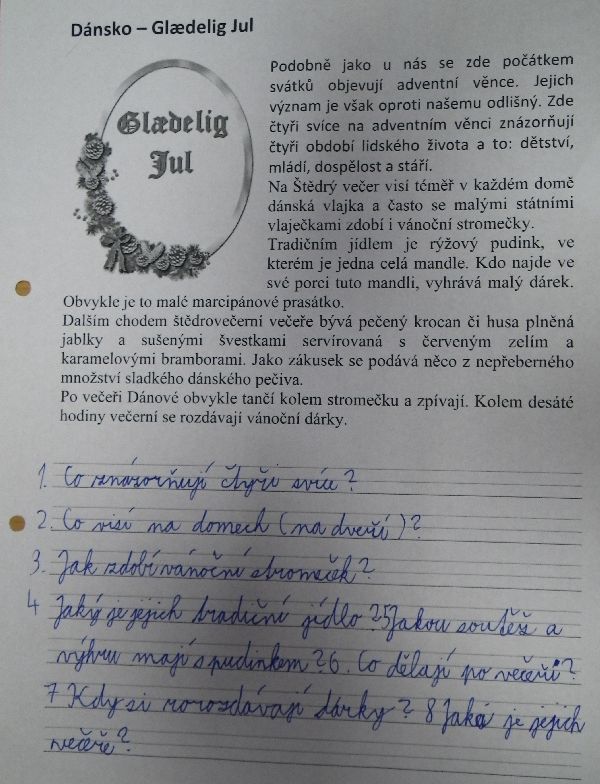 Dánsko – Glædelig Jul
Glædelig
Jul
Podobně jako u nás se zde počátkem
svátků objevují adventní věnce. Jejich
význam je však oproti našemu odlišný. Zde
čtyři svíce na adventním věnci znázorňují
čtyři období lidského života a to: dětství,
mládí, dospělost a stáří.
Na Štědrý večer visí téměř v každém domě
dánská vlajka a často se malými státními
vlaječkami zdobí i vánoční stromečky.
Tradičním jídlem je rýžový pudink, ve
kterém je jedna celá mandle. Kdo najde ve
své porci tuto mandli, vyhrává malý dárek.
Obvykle je to malé marcipánové prasátko.
Dalším chodem štědrovečerní večeře bývá pečený krocan či husa plněná
jablky a sušenými švestkami servírovaná s červeným zelím a
karamelovými bramborami. Jako zákusek se podává něco z nepřeberného
množství sladkého dánského pečiva.
Po večeři Dánové obvykle tančí kolem stromečku a zpívají. Kolem desáté
hodiny večerní se rozdávají vánoční dárky.
1. Co znázorňují čtyři svíce?
2. Co visí na domech (na dveří)?
3. Jak zdobí vánoční stromeček?
4 Jaký je jejich tradiční jídlo? 5 Jakou soutěž a
výhru mají s pudinkem? 6. Co dělají po večeři?
7 Kdy si rorozdávají dárky? 8 Jaká je jejich
večeře?